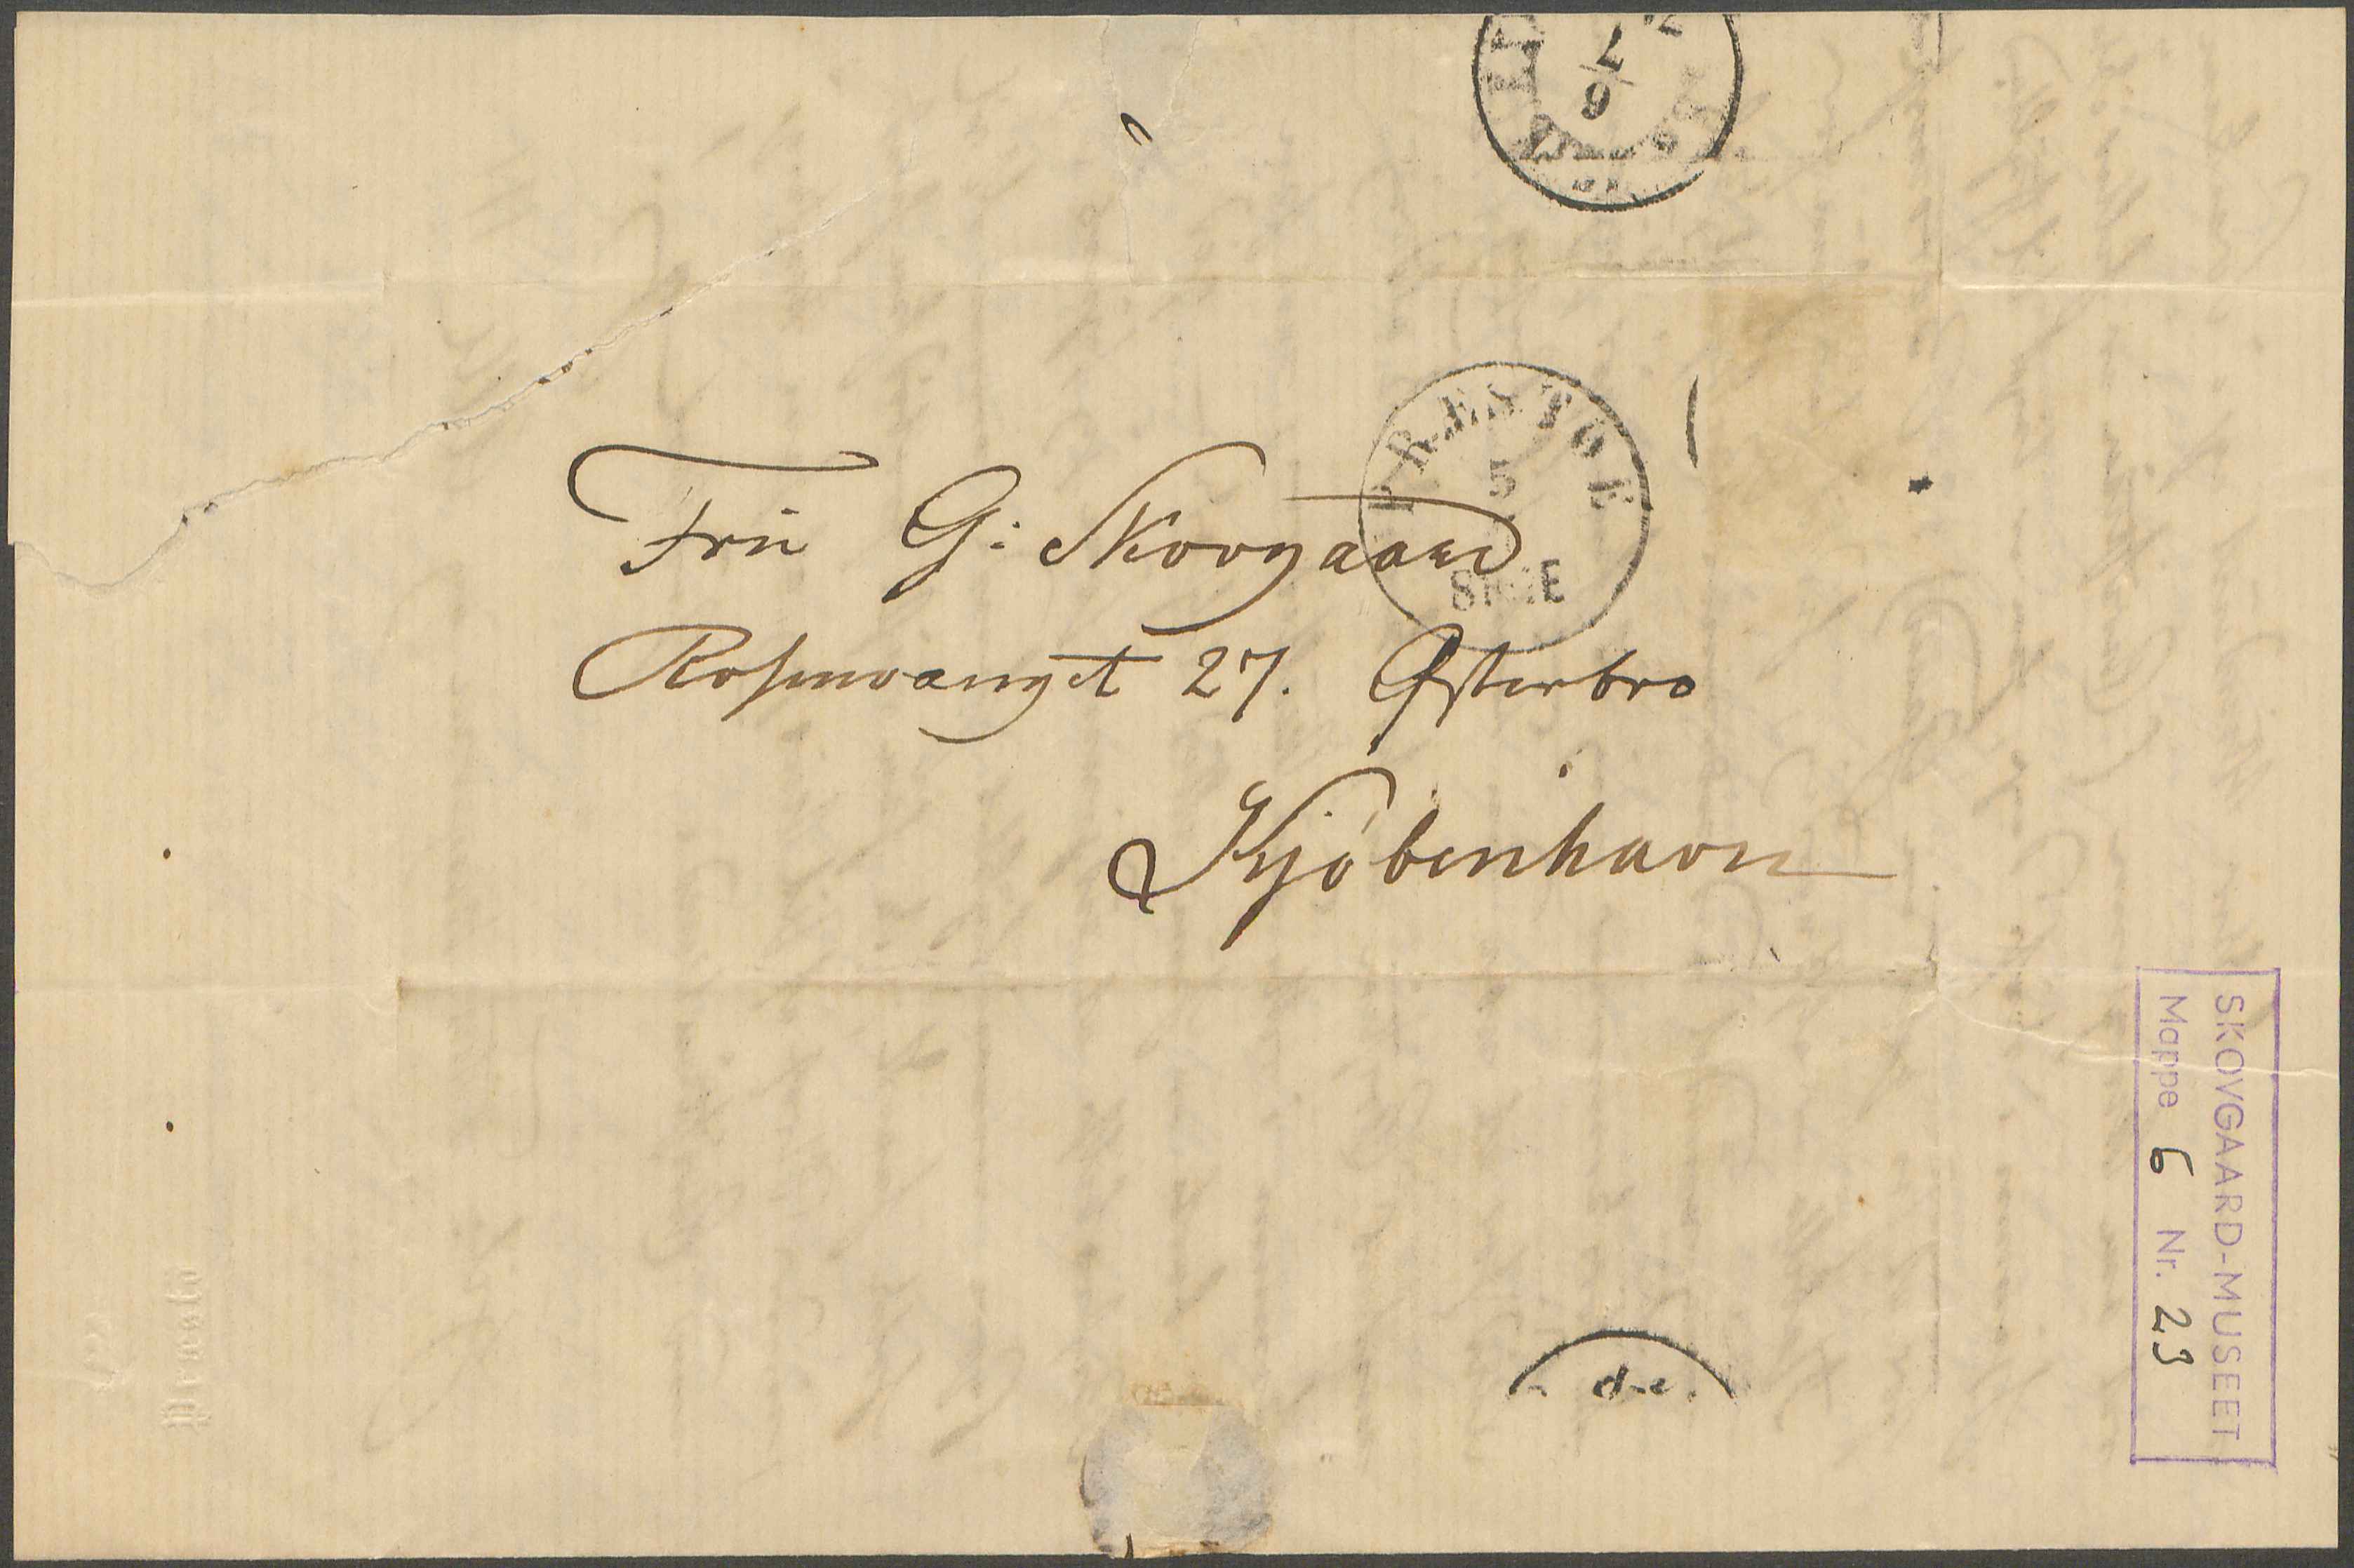 6
7
PRESTOE
5
Frü G: Skovgaard
Rosenvænget 27. Østerbro
Kjöbenhavn
SKOVGAARD-MUSEET
Mappe 6 Nr. 23
Præstö